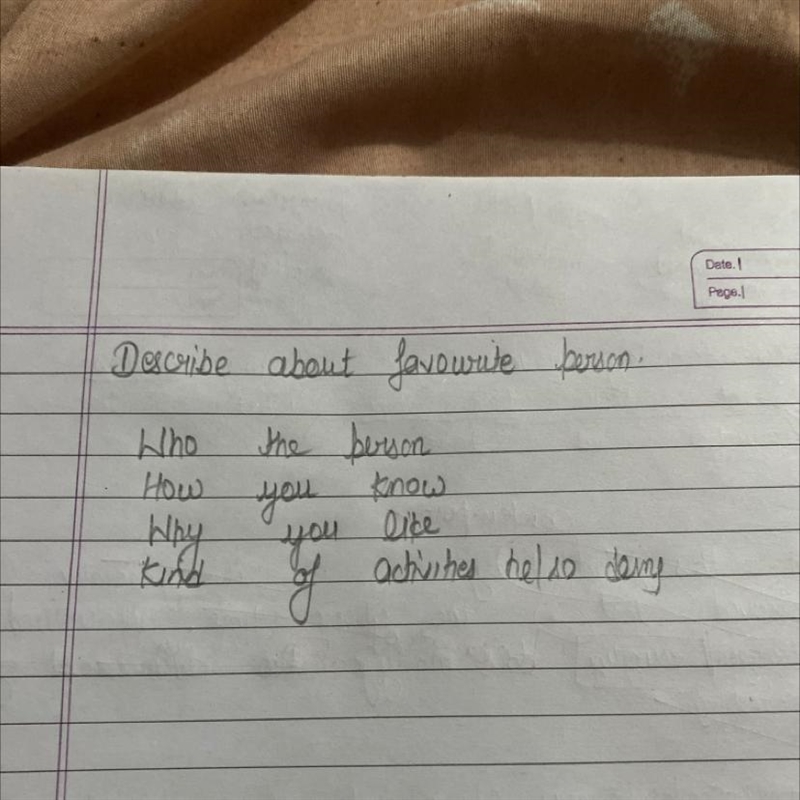 Date.
Page.
Describe about favourite person.
Who the person
How you know
Why you like
Kind of activities doing